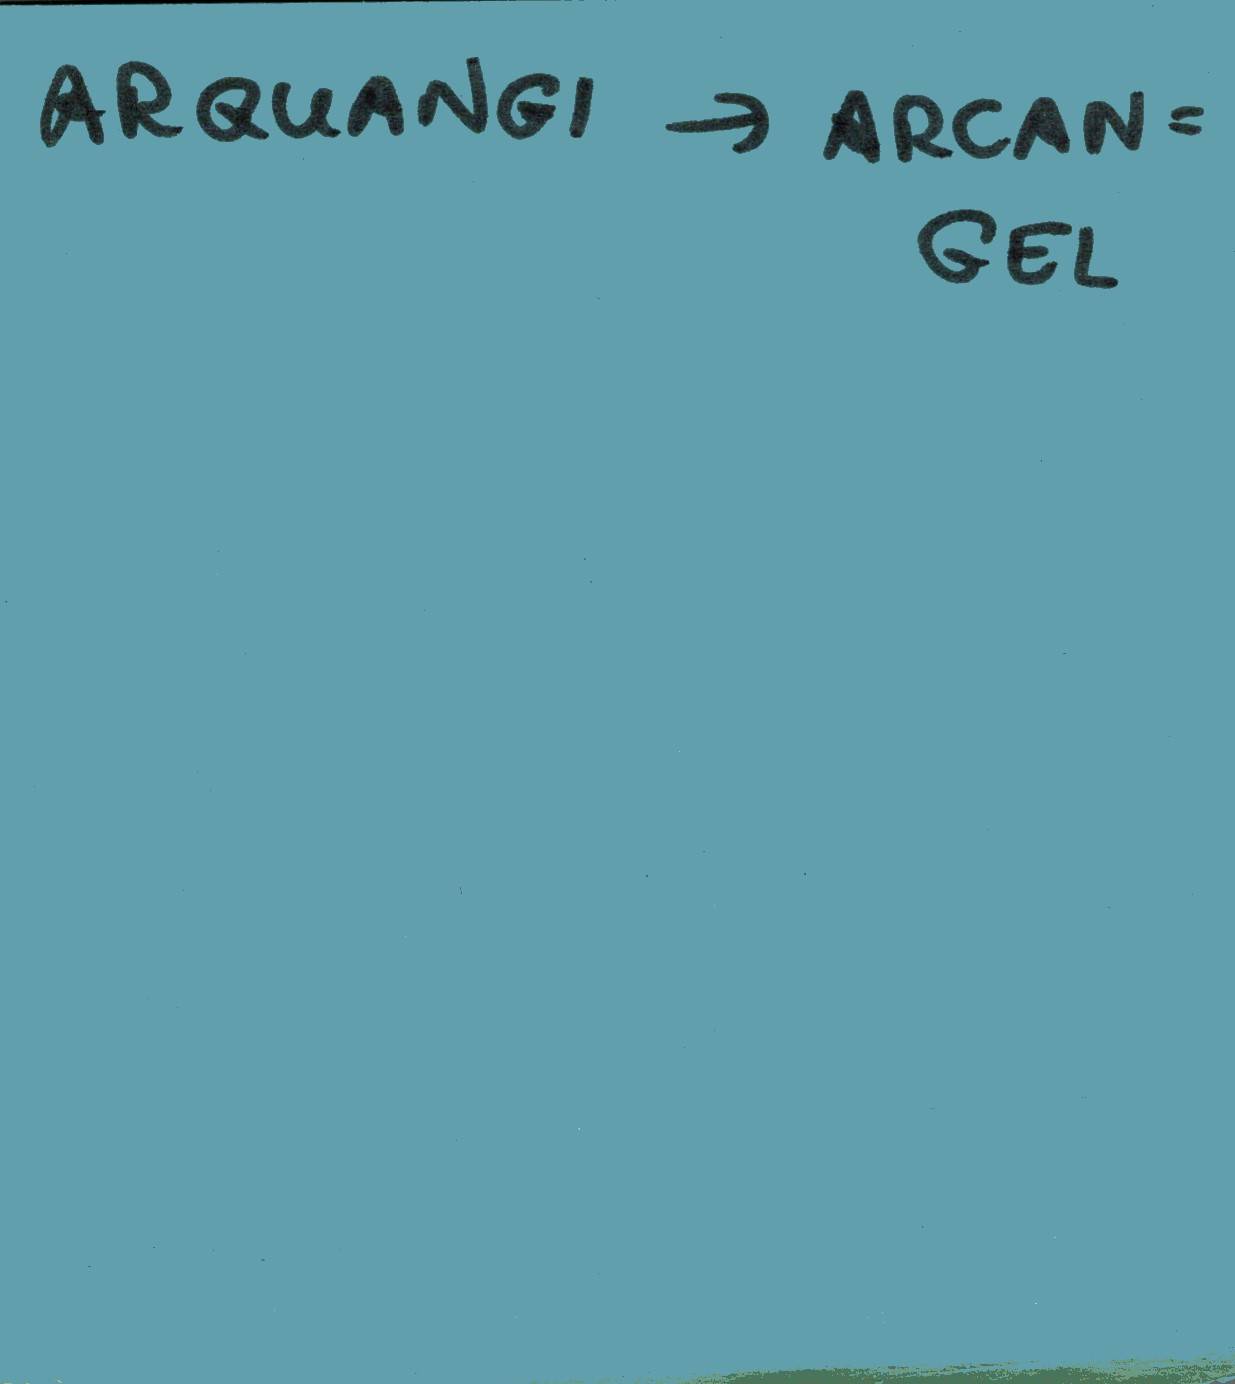 ARQUANGI → ARCAN=
GEL